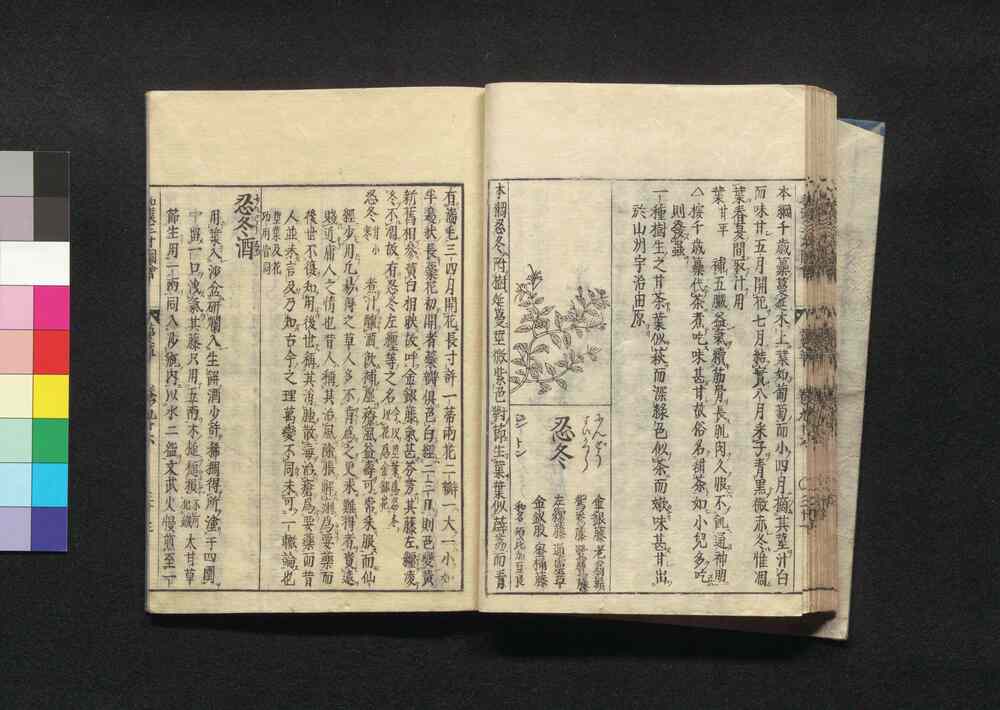 本綱千歳蔂蔓延木上葉如葡萄而小四月摘其莖汁白
而味甘五月開花七月結實八月采子青黑微赤冬惟凋
葉春夏間取汁用
葉甘平 補五臟益氣續筋骨長肌肉久服不飢通神明
△按千歳蔂代茶煮吃味甚甘故俗名甜茶如小兒多吃
則發蟲
一種樹生之甘茶葉似 而深緑色似茶而嫩味甚甘出
於山州宇治田原
忍冬
にんどう
金銀藤 老翁鬚
鴛鴦藤 鷺鷥藤
左纏藤 通靈草
金釵股 密桶藤
本綱忍冬附樹延蔓莖微紫色對節生葉葉似薜茘而青
有濇毛三四月開花長寸許一蒂兩花二瓣一大一小如
半邊狀長蘂花初開者蘂瓣俱色白經二三日則色變黃
新舊相參黃白相映故呼金銀藤氣甚芬芳其藤左纏凌
冬不凋故有忍冬左纏等之名
忍冬 甘小寒 煮汁釀酒飲補虛療風益壽可常采服而仙
經少用凡易得之草人多不肯爲之更求難得者貴遠
賤近庸人之情也昔人稱其治風除脹解痢爲要藥而
後世不復知用後世稱其消腫散毒治瘡爲要藥而昔
人並未言及乃知古今之理萬變不同未可一轍論也
莖葉及花功用皆同
忍冬酒
用 葉入沙盆研爛入生餅酒少許稀稠得所塗于四圍
中留一口洩氣其藤只用五兩木槌槌損不可犯鐵大甘草
節生用一兩同入沙瓶內以水二盌文武火慢煎至一